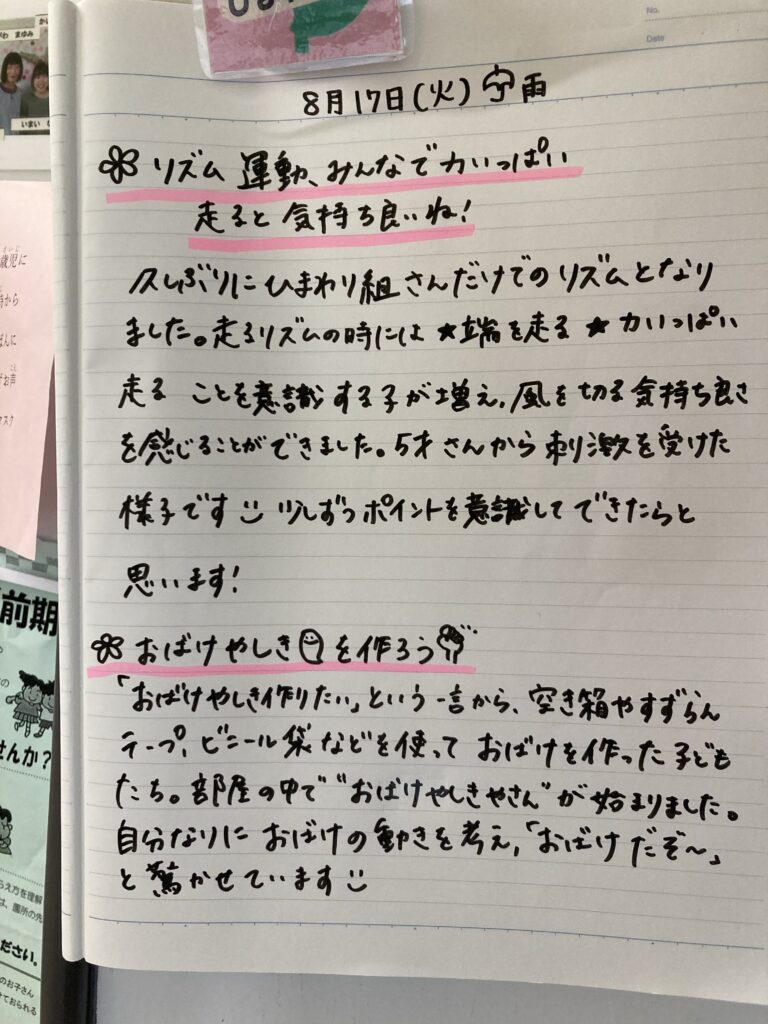 8月17日(火) 雨
リズム運動、みんなで力いっぱい
走ると気持ち良いね!
久しぶりにひまわり組さんだけでのリズムとなり
ました。走るリズムの時には ★端を走る ★力いっぱい
走る ことを意識する子が増え、風を切る気持ち良さ
を感じることができました。5才さんから刺激を受けた
様子です 少しずつポイントを意識してできたらと
思います!
おばけやしきを作ろう
「おばけやしき作りたい」という一言から、空き箱やすずらん
テープ、ビニール袋などを使っておばけを作った子ども
たち。部屋の中で"おばけやしきやさん"が始まりました。
自分なりにおばけの動きを考え、「おばけだぞ〜」
と驚かせています
No.
Date
まゆみ
いまい
歳児に
さいじ
から
ばんに
お声
こえ
マスク
前期
せんか?
らえ方を理解
は、園所の先
ださい。
のお子さん
けておられる